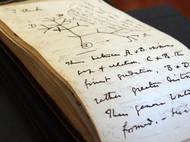 I think
Thus between A & B. immense
gap of relation. C & B. the
finest gradation, B & D
rather greater distinction
Thus genera would be
formed. —